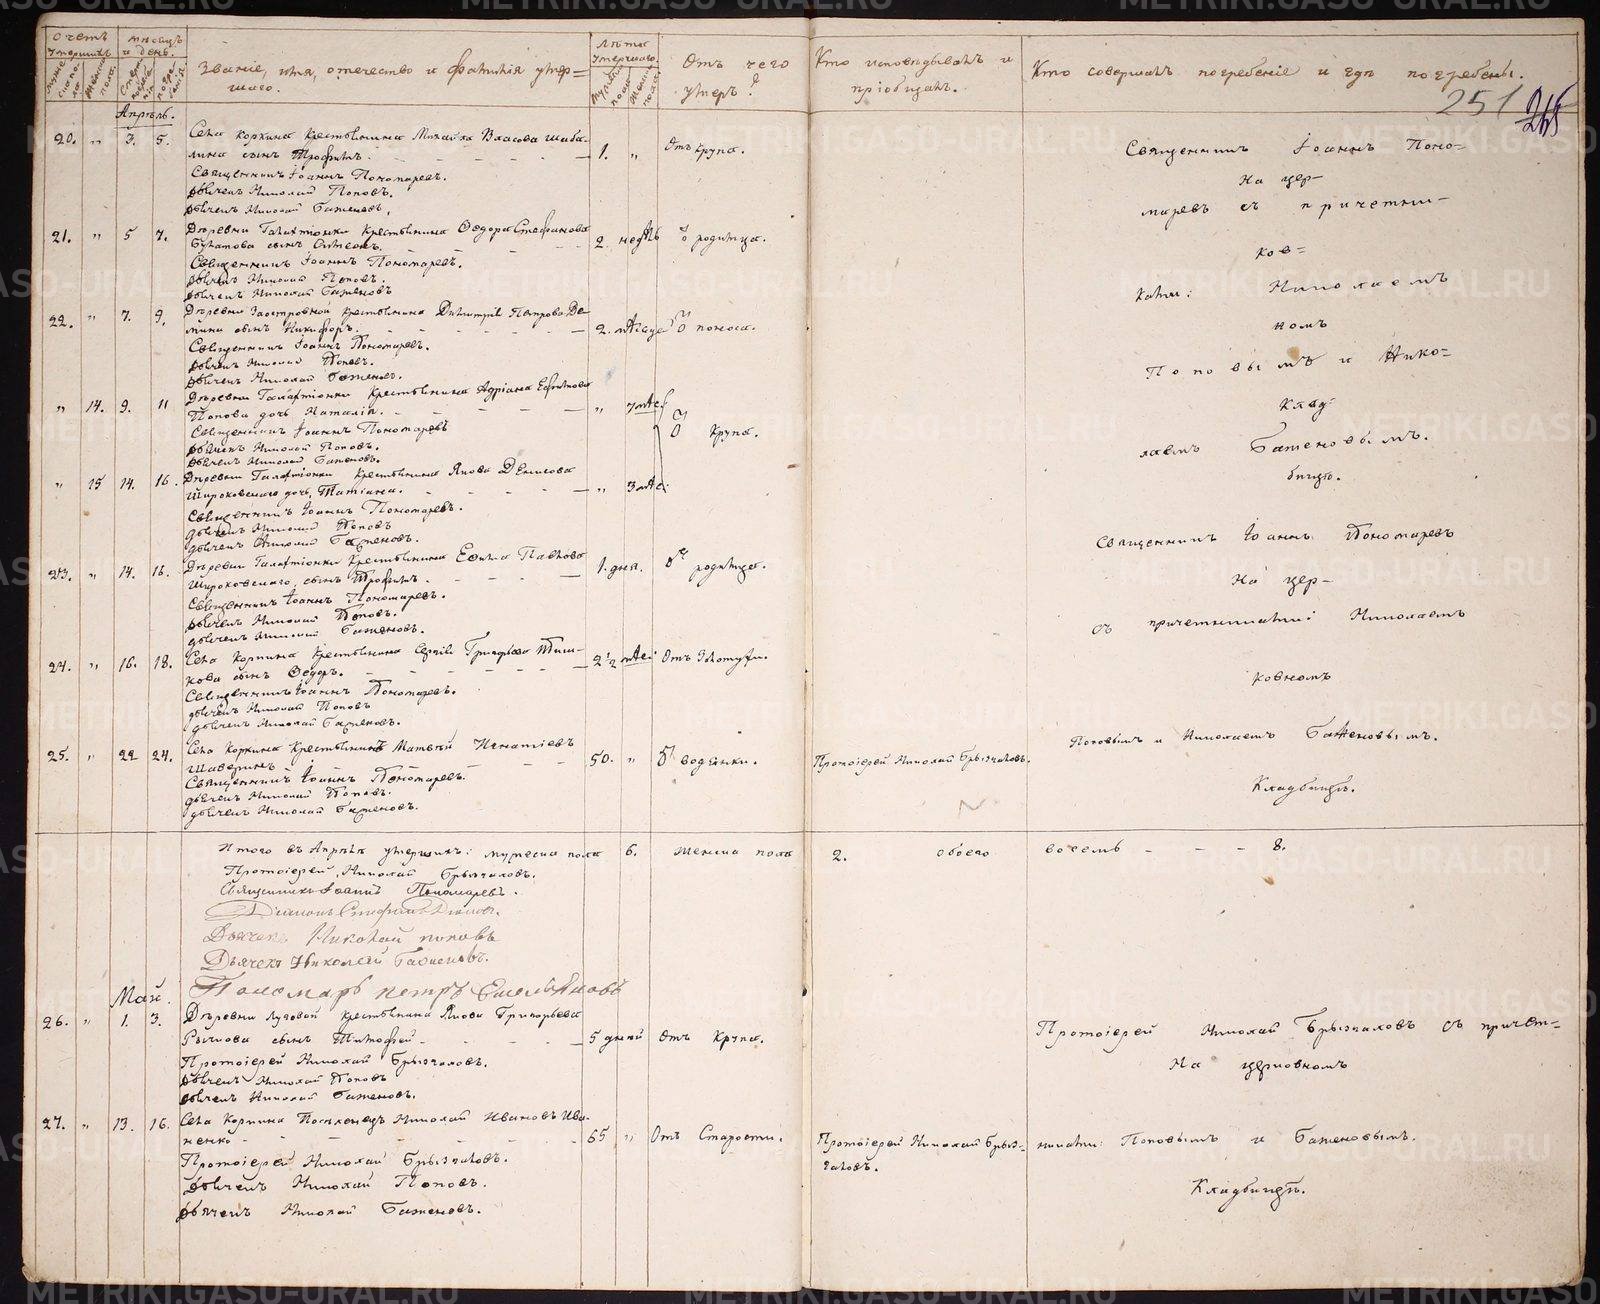 Счетъ умершихъ
Мѣсяцъ и день.
Званіе, имя, отечество и фамилія умер=
шаго.
Лѣта умершаго.
Отъ чего
умеръ?
Кто исповѣдывалъ и
пріобщалъ.
Кто совершалъ погребеніе и гдѣ погребены.
251
Апрѣль.
20. " 3. 5. Села Коркина Крестьянина Михайла Власова Шаба-
лина сынъ Трофимъ. 1. " Отъ крупа.
Священникъ Іоаннъ Пономаревъ.
Дьячекъ Николай Поповъ.
Дьячекъ Николай Баженовъ.
21. " 5 7. Деревни Галактіонки Крестьянина Ѳедора Стефанова
Булатова сынъ Симеонъ. 2. недѣль родимца.
Священникъ Іоаннъ Пономаревъ.
Дьячекъ Николай Поповъ.
Дьячекъ Николай Баженовъ
22. " 7. 9. Деревни Заостровной Крестьянина Димитрія Петрова Де-
мина сынъ Никифоръ. 2. мѣсяце поноса.
Священникъ Іоаннъ Пономаревъ.
Дьячекъ Николай Поповъ.
Дьячекъ Николай Баженовъ.
" 14. 9. 11 Деревни Галактіонки Крестьянина Адріана Ефимова
Попова дочь Наталія. " 7 мѣс Крупа.
Священникъ Іоаннъ Пономаревъ
Дьячекъ Николай Поповъ.
Дьячекъ Николай Баженовъ.
" 15 14. 16. Деревни Галактіонки Крестьянина Якова Денисова
Широковскаго дочь Татіана. " 3 мѣс
Священникъ Іоаннъ Пономаревъ.
Дьячекъ Николай Поповъ
Дьячекъ Николай Баженовъ.
23. " 14. 16. Деревни Галактіонки Крестьянина Ефима Павлова
Широковскаго, сынъ Трофимъ. 1. дня. родимца.
Священникъ Іоаннъ Пономаревъ.
Дьячекъ Николай Поповъ.
Дьячекъ Николай Баженовъ.
24. " 16. 18. Села Коркина Крестьянина Сергія Григорьева
кова сынъ Ѳедоръ. 2 1/2 мѣс Отъ
Священникъ Іоаннъ Пономаревъ.
Дьячекъ Николай Поповъ
Дьячекъ Николай Баженовъ.
25. " 22 24. Села Коркина Крестьянинъ Матвѣй Игнатіевъ
Шаверинъ 50. " водянки. Протоіерей Николай Брызгаловъ.
Священникъ Іоаннъ Пономаревъ.
Дьячекъ Николай Поповъ.
Дьячекъ Николай Баженовъ.
Священникъ Іоаннъ Поно=
На цер-
маревъ съ причетни-
ков=
ками: Николаемъ
номъ
Поповымъ и Нико=
Клад-
лаемъ Баженовымъ.
бищѣ.
Священникъ Іоаннъ Пономаревъ
На цер-
съ причетниками: Николаемъ
ковномъ
Поповымъ и Николаемъ Баженовымъ.
Кладбищѣ.
Итого въ Апрѣлѣ умершихъ: мужеска пола 6. женска пола 2. обоего восемь - - - 8.
Протоіерей Николай Брызгаловъ.
Священникъ Іоаннъ Пономаревъ.
Дьячекъ Николай Поповъ
Дьячекъ Николай Баженовъ.
Пономарь Петръ Емельяновъ
Май.
26. " 1. 3. Деревни Луговой Крестьянина Якова Григорьева
Рычкова сынъ Тимофей 5 дней Отъ Крупа.
Протоіерей Николай Брызгаловъ.
Дьячекъ Николай Поповъ
Дьячекъ Николай Баженовъ.
27. " 13. 16. Села Коркина Поселенецъ Николай Ивановъ Ива-
ненко 65 " Отъ Старости. Протоіерей Николай Брыз-
галовъ.
Протоіерей Николай Брызгаловъ.
Дьячекъ Николай Поповъ.
Дьячекъ Николай Баженовъ.
Протоіерей Николай Брызгаловъ съ причет-
На церковномъ
никами: Поповымъ и Баженовымъ.
Кладбищѣ.
METRIKI.GASO-URAL.RU